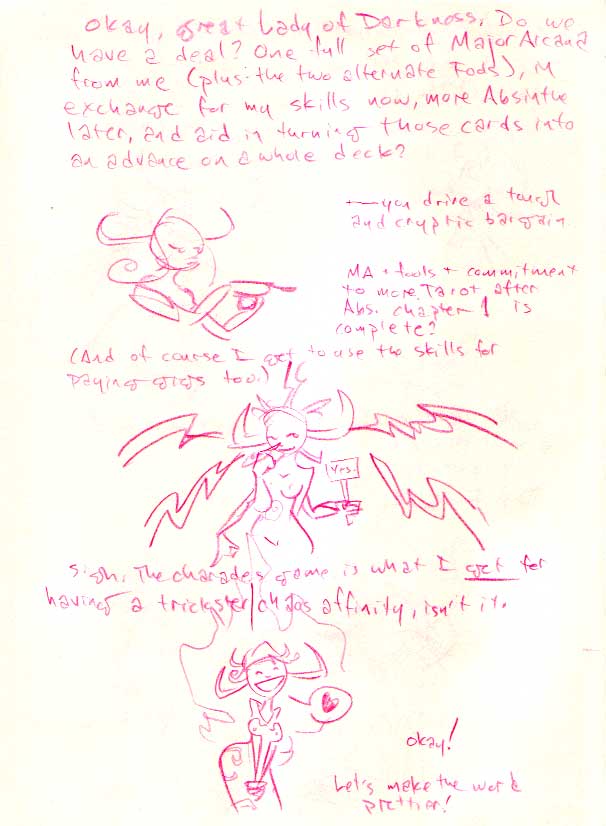 okay, great Lady of Darkness, Do we
have a deal? One full set of Major Arcana
from me (plus: the two alternate Fools), in
exchange for my skills now, more Absinthe
later, and aid in turning those cards into
an advance on a whole deck?
←you drive a tough
and cryptic bargain.
MA + tools + commitment
to more Tarot after
Abs. chapter 1 is
complete?
(And of course I get to use the skills for
paying gigs too.)
Yes.
Sigh. The charades game is what I get for
having a trickster/chaos affinity, isn't it.
okay!
Let's make the world
prettier!